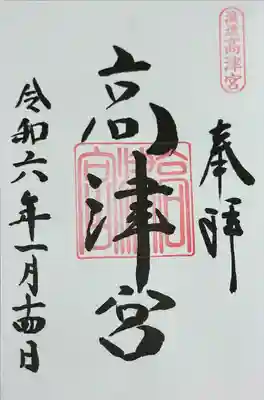 浪速高津宮
奉拝
高津宮
令和六年一月十四日